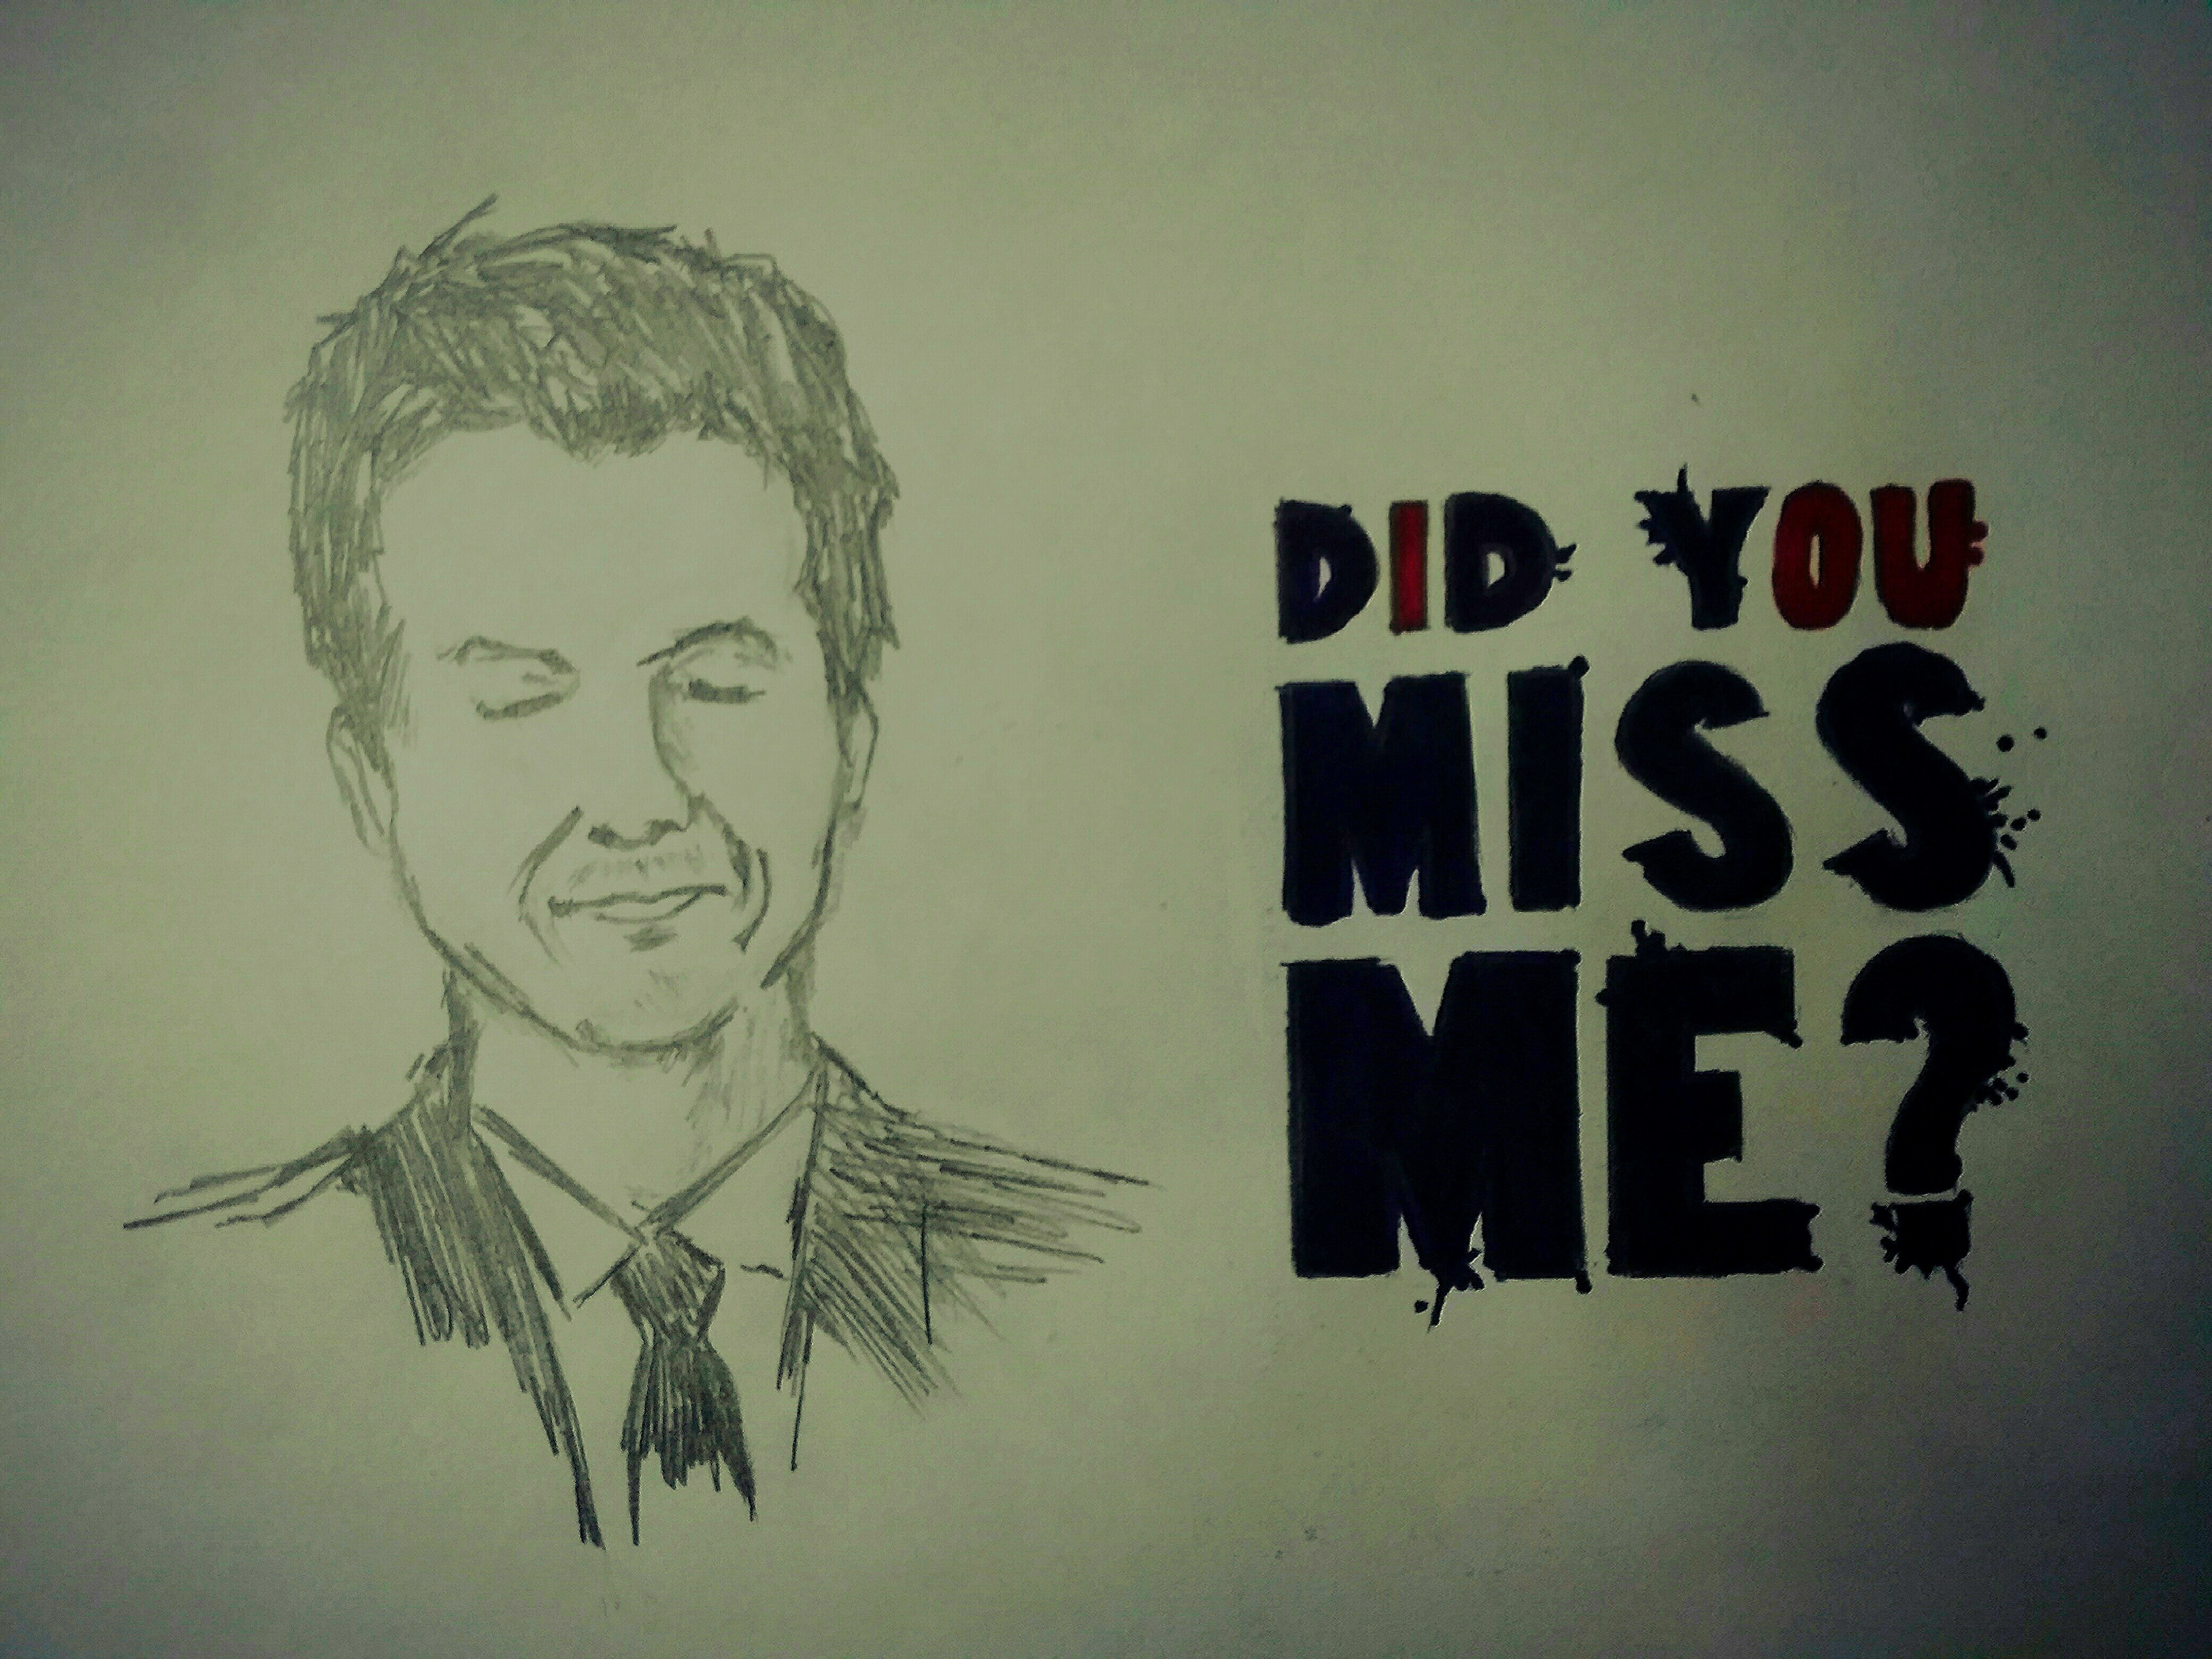 DID YOU
MISS
ME?